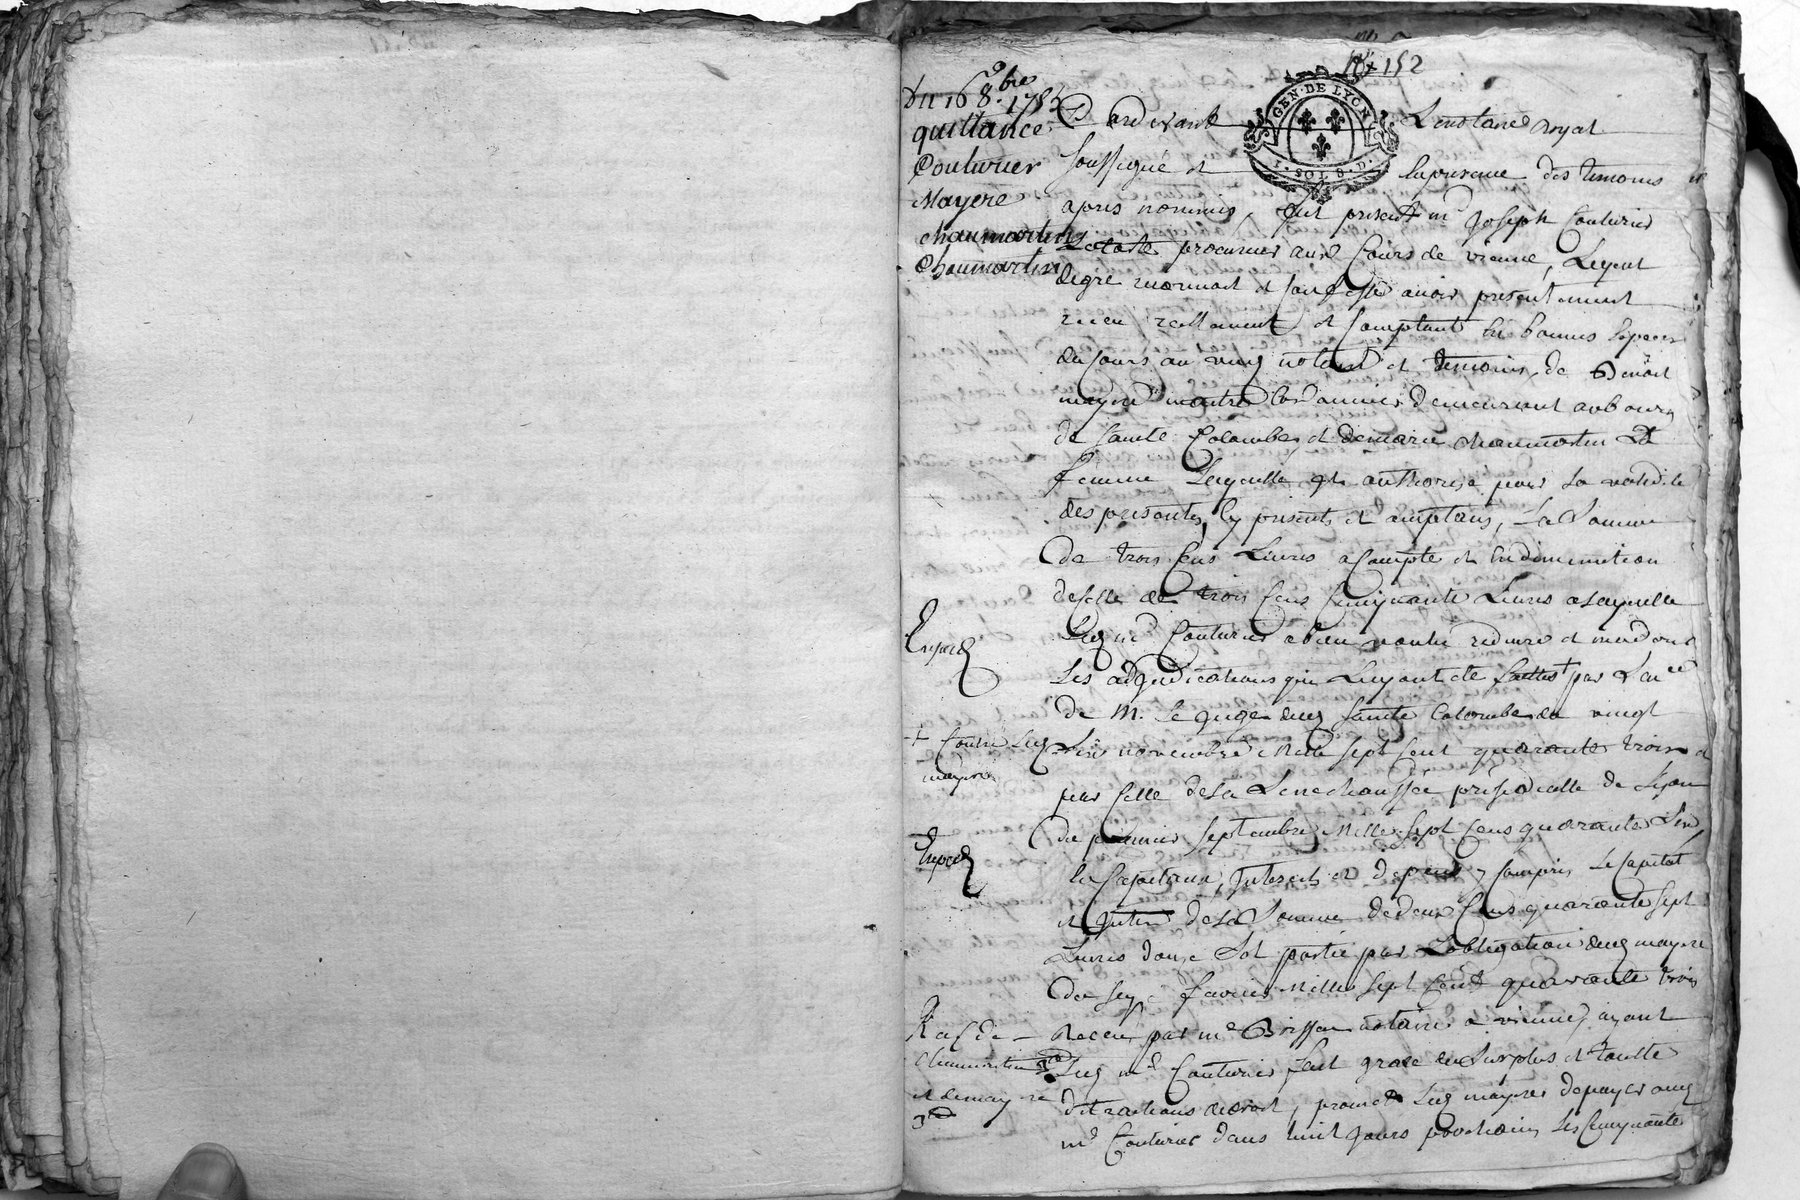 152
Du 16 8bre
quittance
Couturier
Mayere
chaumartin
Chaumartin
GEN. DE LYON
I. SOL 8. D.
Pardevant Le notaire royal
soussigné et la presence des temoins
apres nommés, fut present md Joseph Couturier
procureur aux Cours de vienne, Lequel
de gré reconnoit et Confesse avoir presentement
receu reellement et Comptant En bonnes Especes
du Cours au vung notaire et temoins, de Benoit
mayere maitre demeurant au bourg
de sainte Colombe, et de marie chaumartin Sa
femme Laquelle authorise pour la validité
des presentes, Cy presents et acceptans, La Somme
De trois Cens Livres a Compte et En diminution
de Celle de trois Cens Cinquante Livres a Laquelle
Led md Couturier a bien voulu reduire et moderer
Les adjudications qui Luy ont eté faittes + par
De M. le Juge dud sainte Colombe du vingt
Six novembre Mille sept Cent quarante trois et
par Celle de la Senechaussée presidialle de Lyon
Du premier Septembre Mille sept Cens quarante Six
En Capitaux, Interets et depens y Compris le Capital
et Interets de la Somme de deux Cens quarante sept
Livres douze Sols portée par L'obligation dud mayere
du seize fevrier Mille sept Cent quarante trois
Receue par me Brisson notaire a vienne, ayant
Led md Couturier fait grace du Surplus et toutte
de droit, promet Led mayere de payer aud
md Couturier dans huit Jours prochains Les Cinquante
Exped
+ Contre Led
mayere
Exped
chaumartin
et de mayere